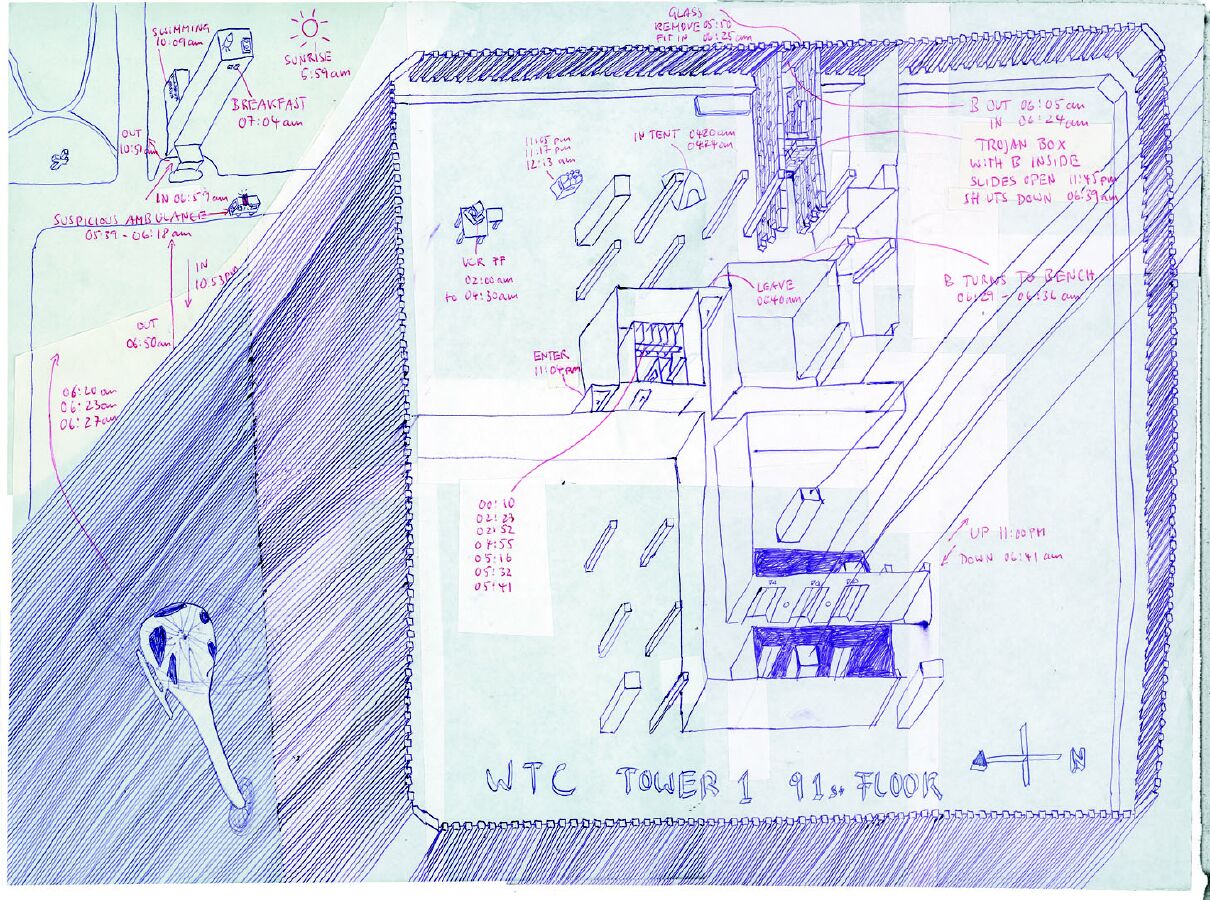 SWIMMING
10:09am
SUNRISE
6:59am
BREAKFAST
07:04am
OUT
10:51am
IN 06:59am
SUSPICIOUS AMBULANCE
05:39 - 06:18am
IN
10:53pm
OUT
06:50am
06:20am
06:23am
06:27am
GLASS
REMOVE 05:50
FIT IN 06:25am
B OUT 06:05am
IN 06:24am
TROJAN BOX
WITH B INSIDE
SLIDES OPEN 11:45pm
SHUTS DOWN 06:39am
11:05pm
11:17pm
12:13am
IN TENT 04:20am
04:24am
VCR FF
02:00am
to 04:30am
LEAVE
06:40am
B TURNS TO BENCH
06:29 - 06:36am
ENTER
11:04pm
00:10
02:23
02:52
04:55
05:16
05:32
05:41
UP 11:00PM
DOWN 06:41am
WTC TOWER 1 91st FLOOR
N